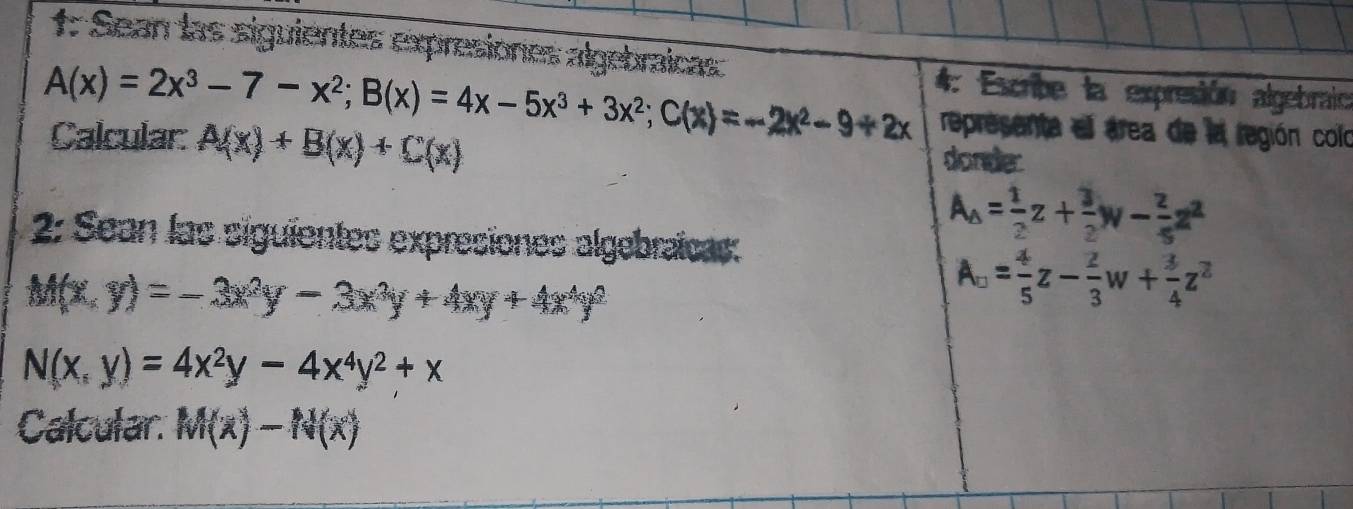 1: Sean las siguientes expresiones algebraicas:
A(x) = 2x³ − 7 − x²; B(x) = 4x − 5x³ + 3x²; C(x) = −2x² − 9 + 2x
Calcular: A(x) + B(x) + C(x)
2: Sean las siguientes expresiones algebraicas:
M(x, y) = − 3x²y − 3x²y + 4xy + 4x⁴y²
N(x, y) = 4x²y − 4x⁴y² + x
Calcular. M(x) − N(x)
4: Escribe la expresión algebraic
representa el área de la región colo
donde:
A△ = 1/2 z + 3/2 w − 2/5 z²
A□ = 4/5 z − 2/3 w + 3/4 z²